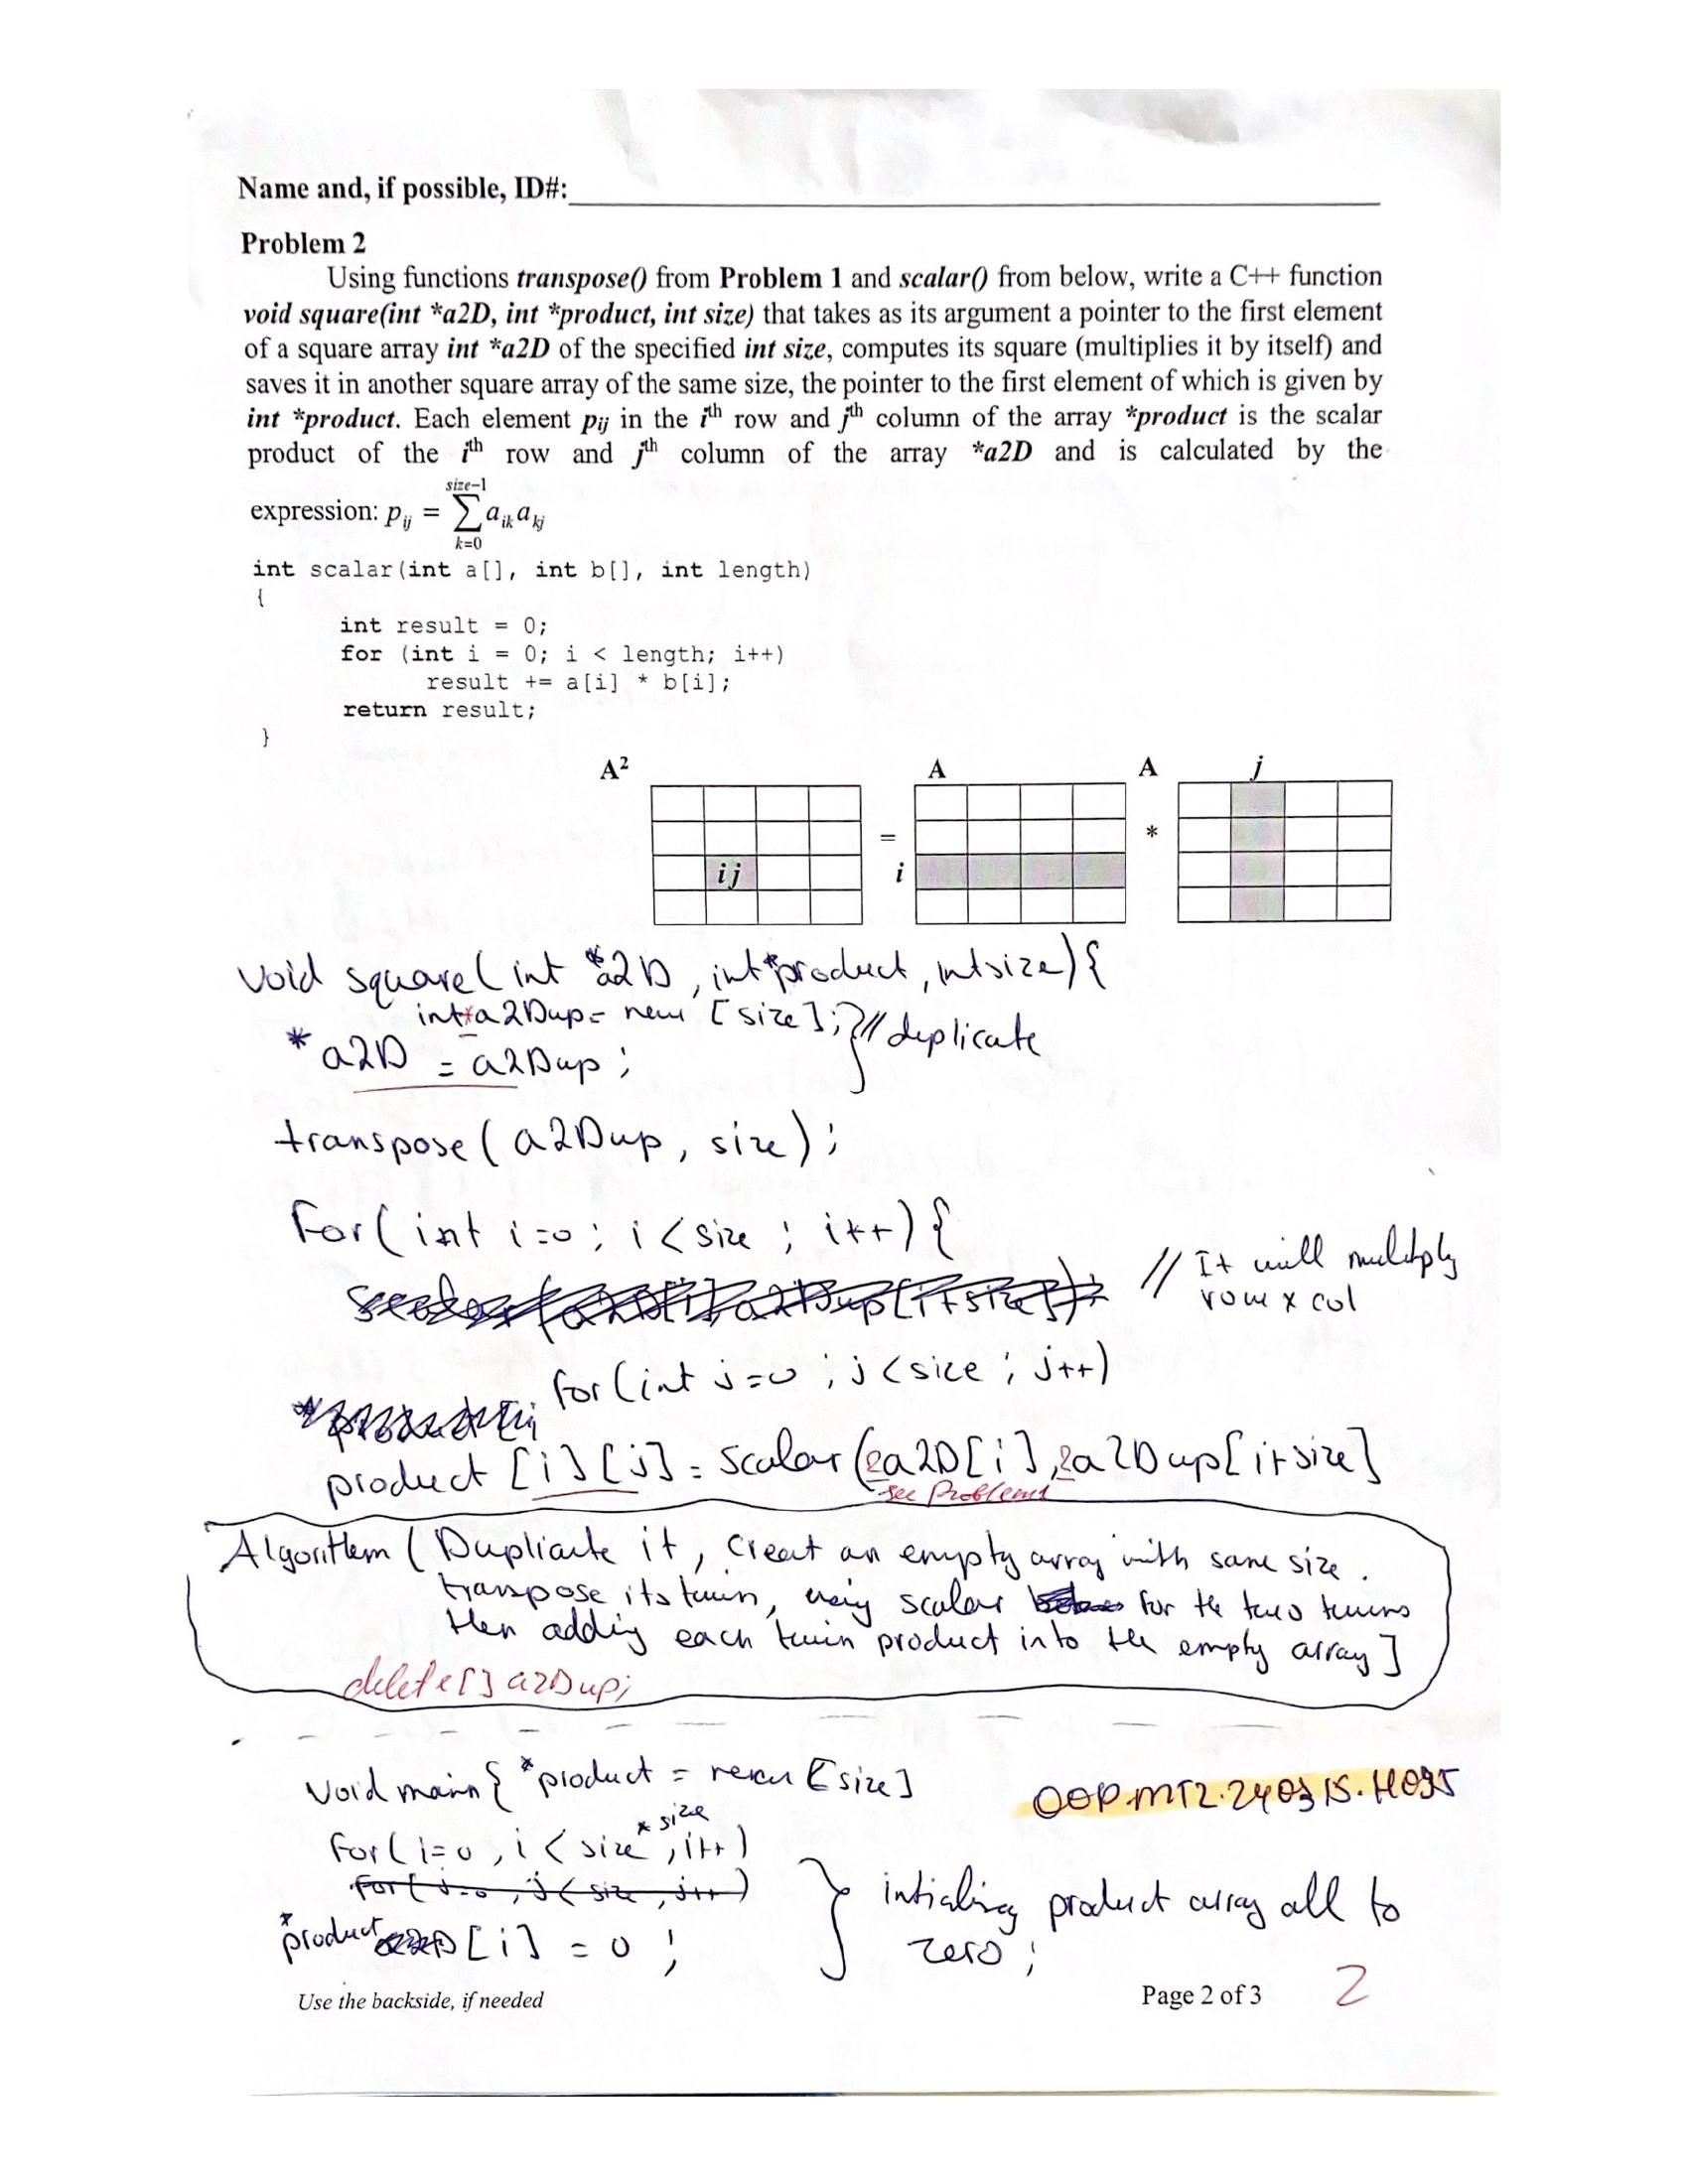 Name and, if possible, ID#:
Problem 2
Using functions transpose() from Problem 1 and scalar() from below, write a C++ function
void square(int *a2D, int *product, int size) that takes as its argument a pointer to the first element
of a square array int *a2D of the specified int size, computes its square (multiplies it by itself) and
saves it in another square array of the same size, the pointer to the first element of which is given by
int *product. Each element pij in the ith row and jth column of the array *product is the scalar
product of the ith row and jth column of the array *a2D and is calculated by the
size-1
expression: pij = ∑ aik akj
k=0
int scalar(int a[], int b[], int length)
{
int result = 0;
for (int i = 0; i < length; i++)
result += a[i] * b[i];
return result;
}
A² A A j
= *
ij i
void square( int *a2D , int *product , int size){
int*a2Dup= new [size]; } // duplicate
*a2D = a2Dup ;
transpose( a2Dup , size) ;
For( int i=0 ; i < size ; i++) {
// It will multiply
row x col
for(int j=0 ; j < size ; j++)
product [i][j] = scalar(&a2D[i], &a2Dup[i+size]
see Problem1
Algorithm ( Dupliarte it, creat an empty array with same size .
transpose its twin, using scalar for the two twins
then adding each twin product into the empty array ]
delete[] a2Dup;
void main{ *product = [size]
OOP.MT2.240315.H095
* size
for( i=0 , i < size , i++)
for( j=0 , j < size , j++)
*product [i] = 0 ; } product array all to
zero ;
Use the backside, if needed
Page 2 of 3
2